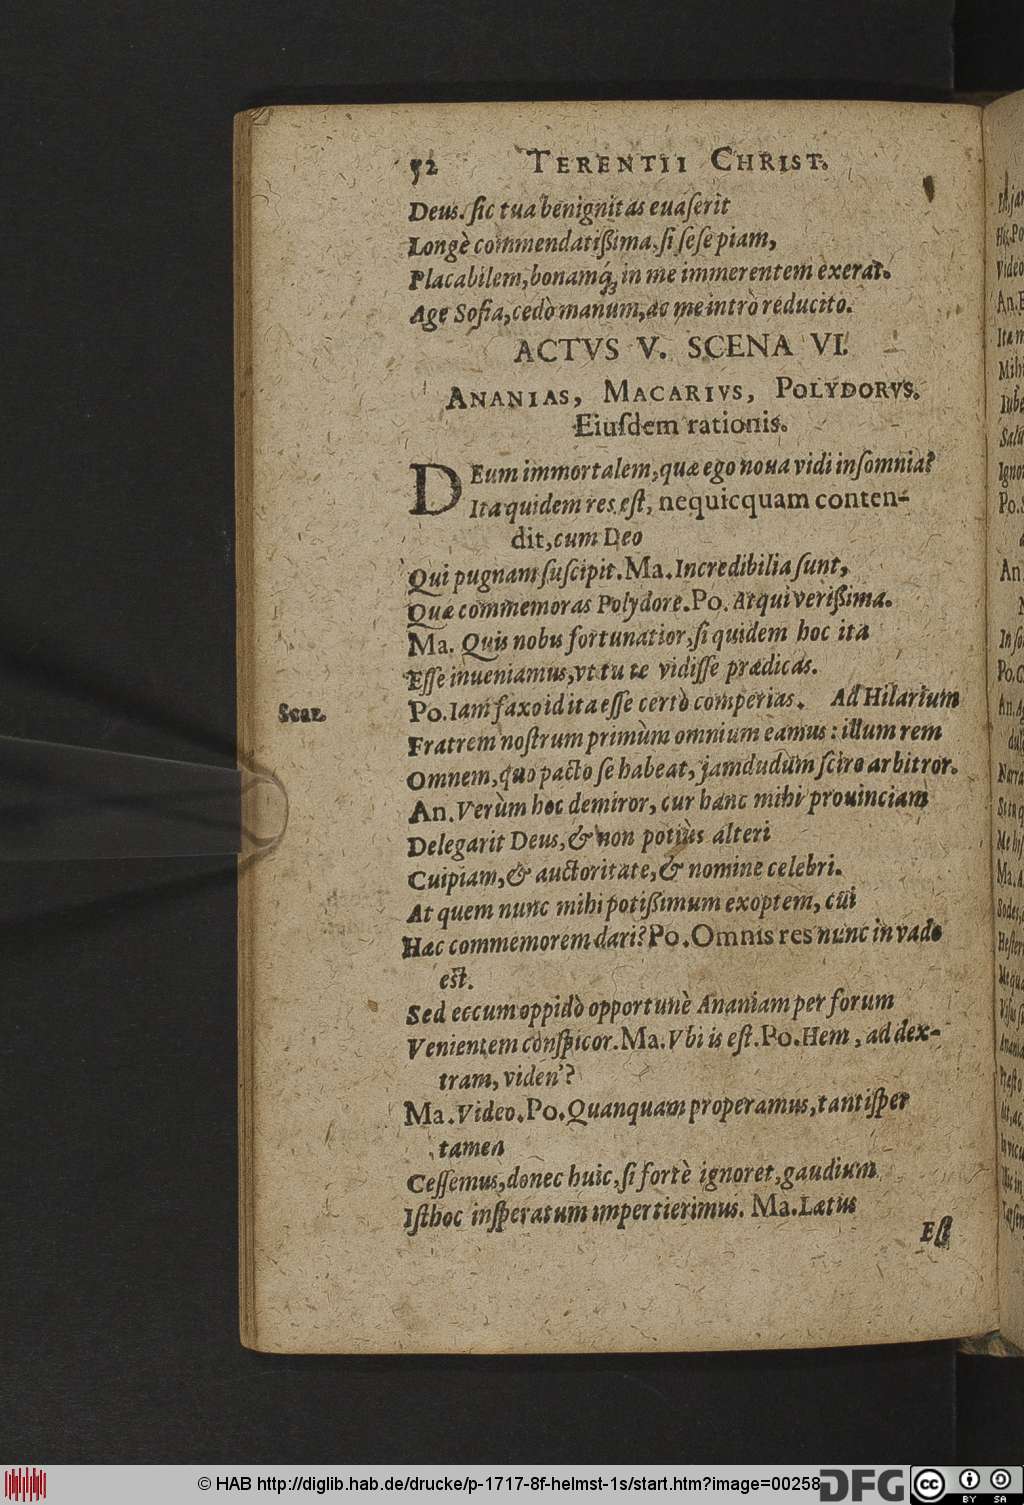 52 TERENTII CHRIST.
Deus. sic tua benignitas euaserit
Longè commendatißima, si sese piam,
Placabilem, bonamq́; in me immerentem exerat.
Age Sosia, cedò manum, ac me intrò reducito.
ACTVS V. SCENA VI.
ANANIAS, MACARIVS, POLYDORVS.
Eiusdem rationis.
DEum immortalem, quæ ego noua vidi insomnia?
Ita quidem res est, nequicquam conten-
dit, cum Deo
Qui pugnam suscipit. Ma. Incredibilia sunt,
Quæ commemoras Polydore. Po. Atqui verißima.
Ma. Quis nobis fortunatior, si quidem hoc ita
Esse inueniamus, vt tu te vidisse prædicas.
Scaz.
Po. Iam faxo id ita esse certò comperias. Ad Hilarium
Fratrem nostrum primùm omnium eamus: illum rem
Omnem, quo pacto se habeat, jamdudum scire arbitror.
An. Verùm hoc demiror, cur hanc mihi prouinciam
Delegarit Deus, & non potiùs alteri
Cuipiam, & auctoritate, & nomine celebri.
At quem nunc mihi potißimum exoptem, cui
Hæc commemorem dari? Po. Omnis res nunc in vado
est.
Sed eccum oppidò opportunè Ananiam per forum
Venientem conspicor. Ma. Vbi is est. Po. Hem, ad dex-
tram, viden'?
Ma. Video. Po. Quanquam properamus, tantisper
tamen
Cessemus, donec huic, si fortè ignoret, gaudium
Isthoc insperatum impertierimus. Ma. Lætus
Est
© HAB http://diglib.hab.de/drucke/p-1717-8f-helmst-1s/start.htm?image=00258
DFG
cc BY SA